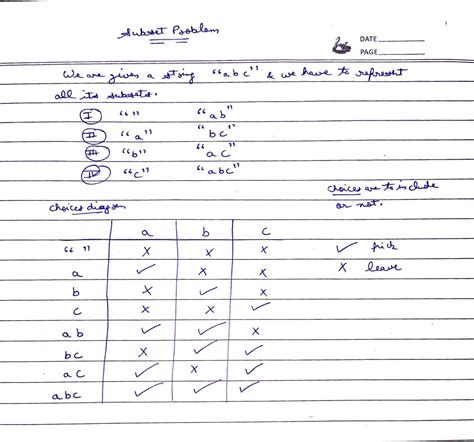 Subset Problem
DATE
PAGE
We are given a string "abc" & we have to represent
all its subsets.
I "" "ab"
II "a" "bc"
III "b" "ac"
IV "c" "abc"
choices are to include
or not.
choices diagram
a b c
" " x x x ✓ pick
a ✓ x x x leave
b x ✓ x
c x x ✓
ab ✓ ✓ x
bc x ✓ ✓
ac ✓ x ✓
abc ✓ ✓ ✓